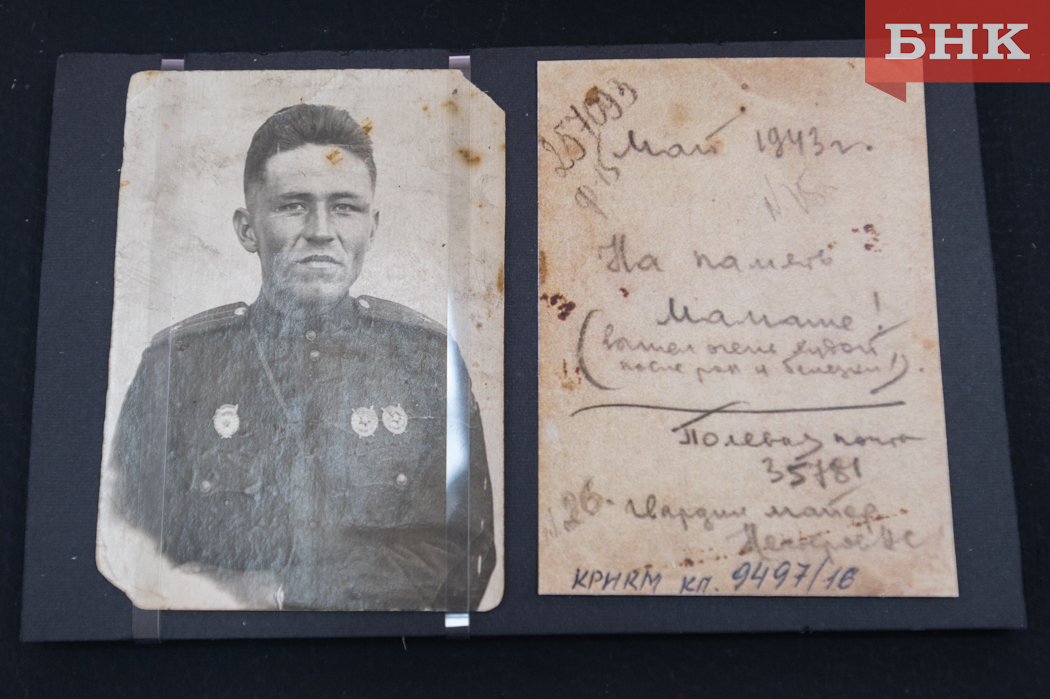 БНК
257093
Ф В
Май 1943 г.
На память
Мамаше!
(вышел очень худой
после ран и болезни!).
Полевая почта
35781
гвардии майор
КРИКМ КП. 9497/16